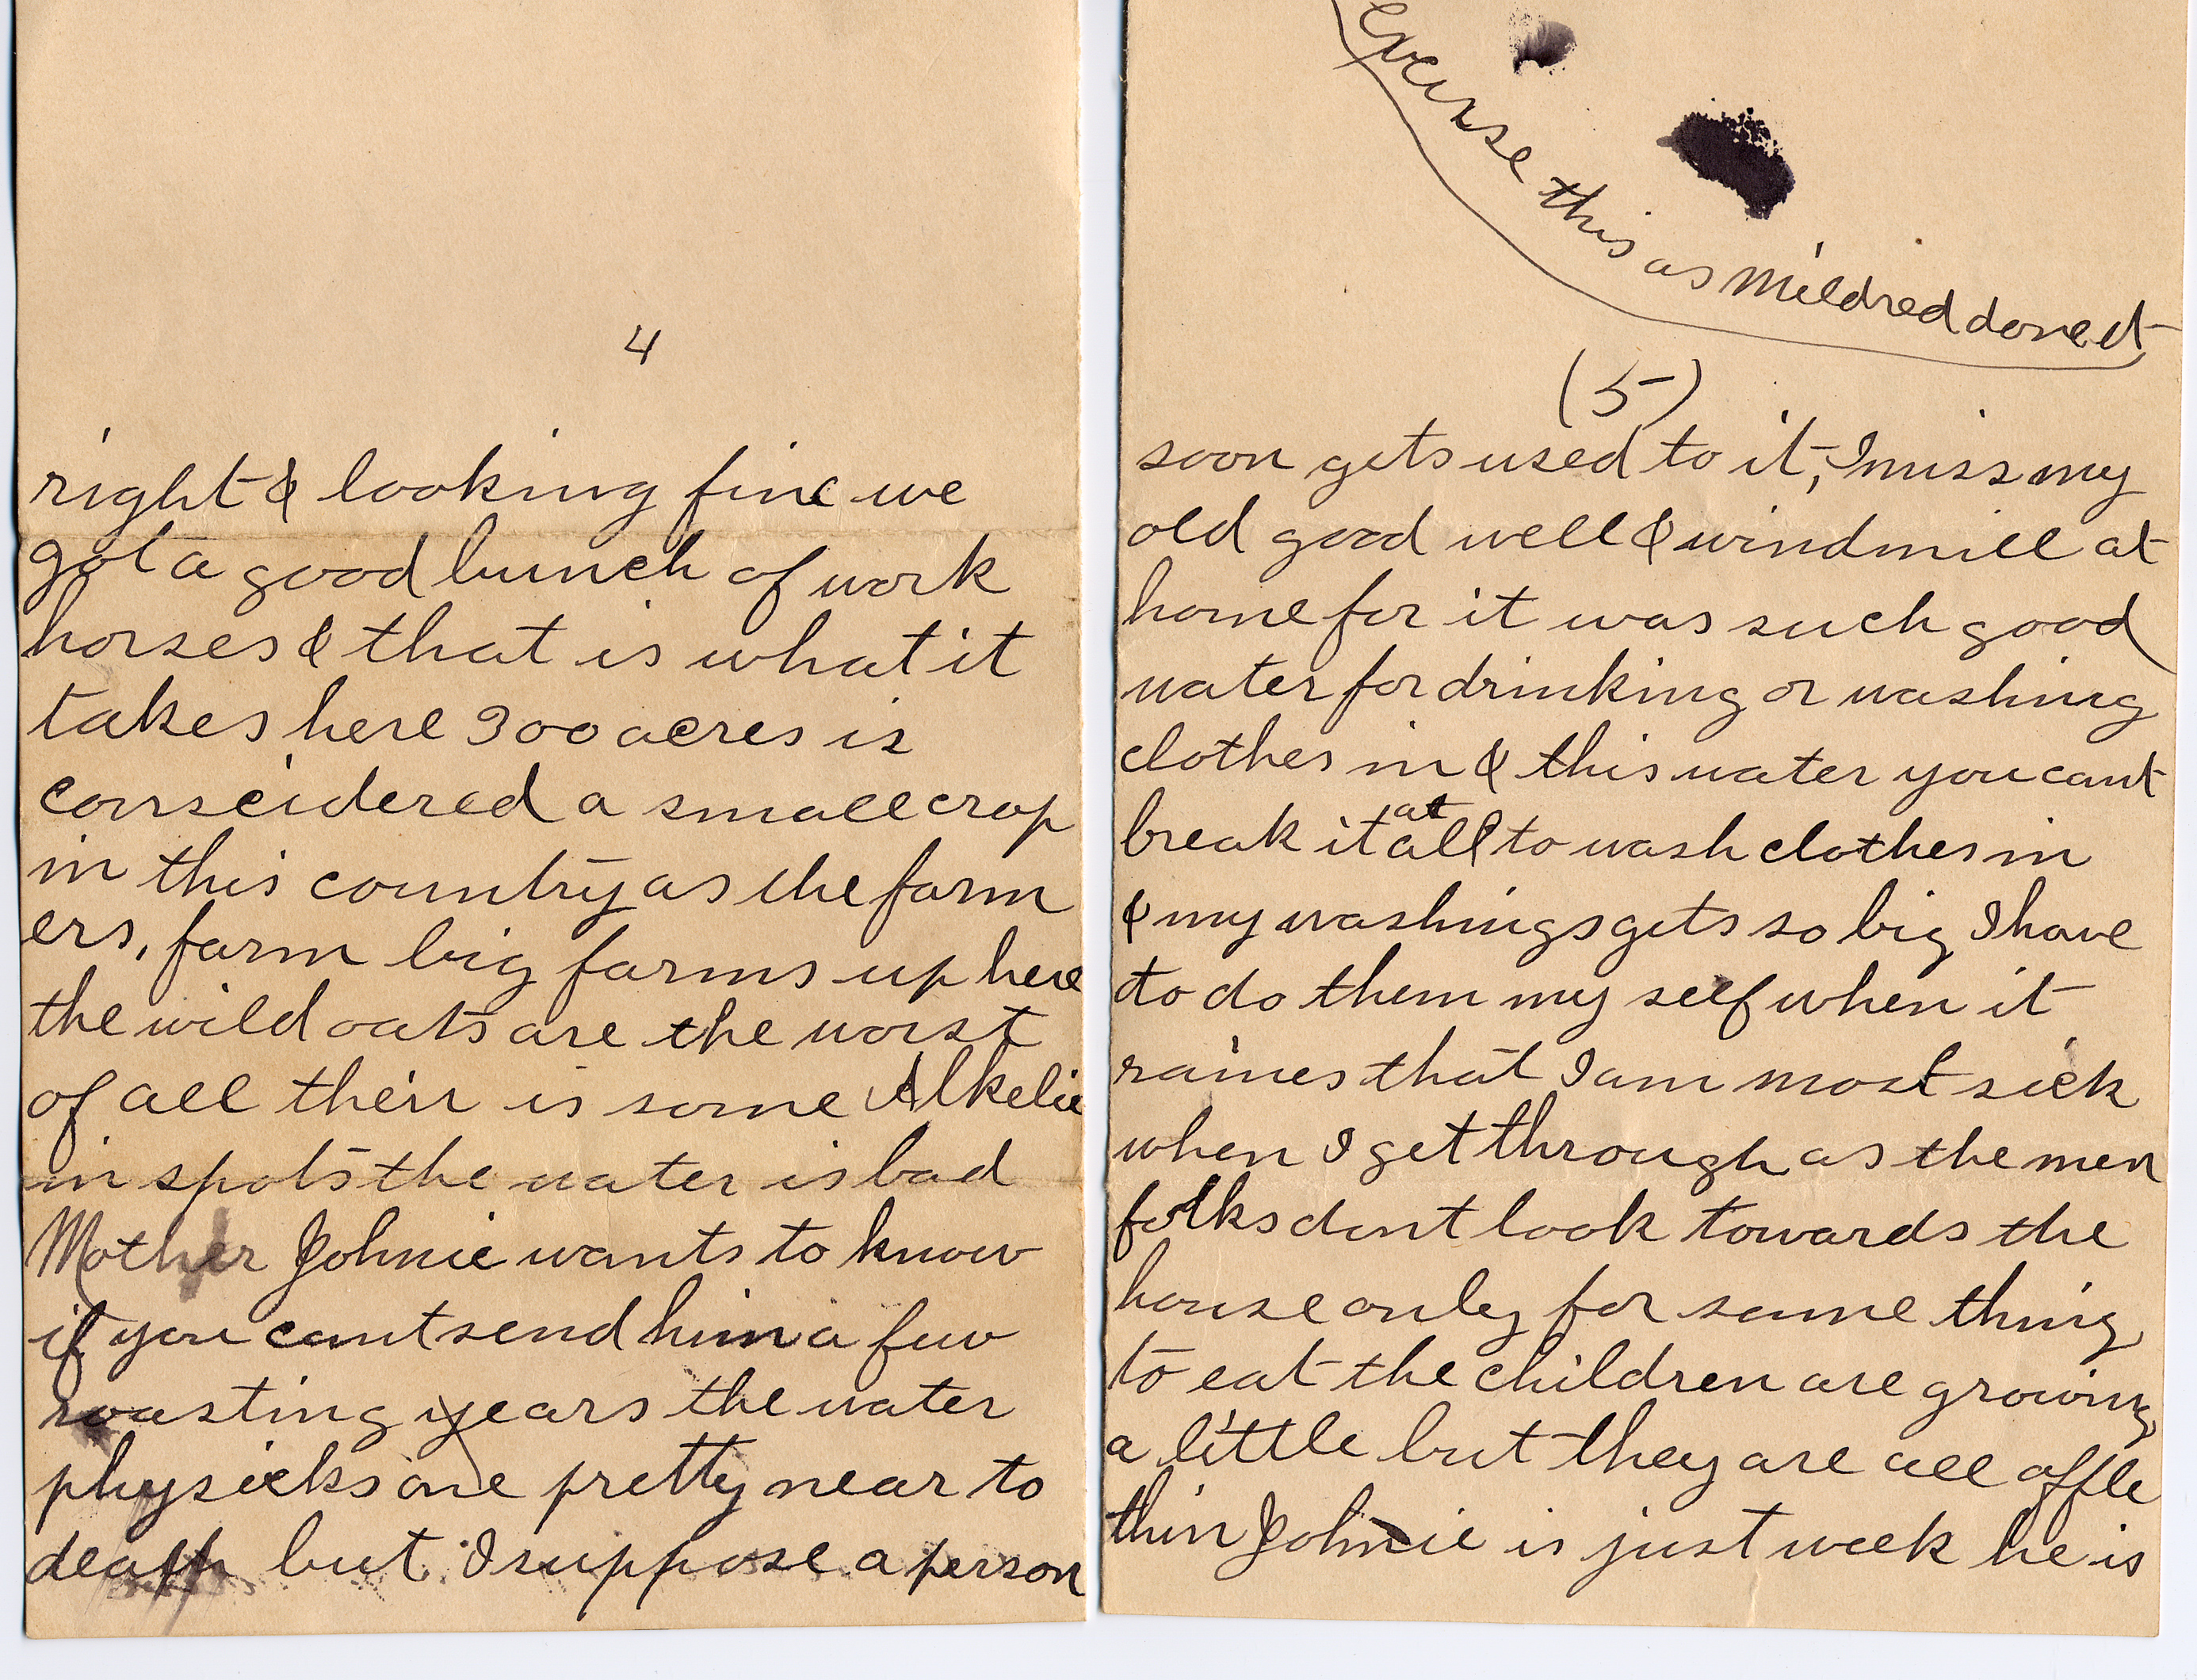 4
right & looking fine we
got a good bunch of work
horses & that is what it
takes here 300 acres is
conseidered a small crop
in this country as the farm
ers, farm big farms up here
the wild oats are the worst
of all their is some Alkelie
in spots the water is bad
Mother Johnie wants to know
if you cant send him a few
roasting years the water
physicks one pretty near to
death but I suppose a person
excuse this as Mildred done it
(5)
soon gets used to it, I miss my
old good well & windmill at
home for it was such good
water for drinking or washing
clothes in & this water you cant
break it at all to wash clothes in
& my washings gets so big I have
to do them my self when it
raines that I am most sick
when I get through as the men
folks dont look towards the
house only for some thing
to eat the children are growing
a little but they are all affle
thin Johnie is just week he is